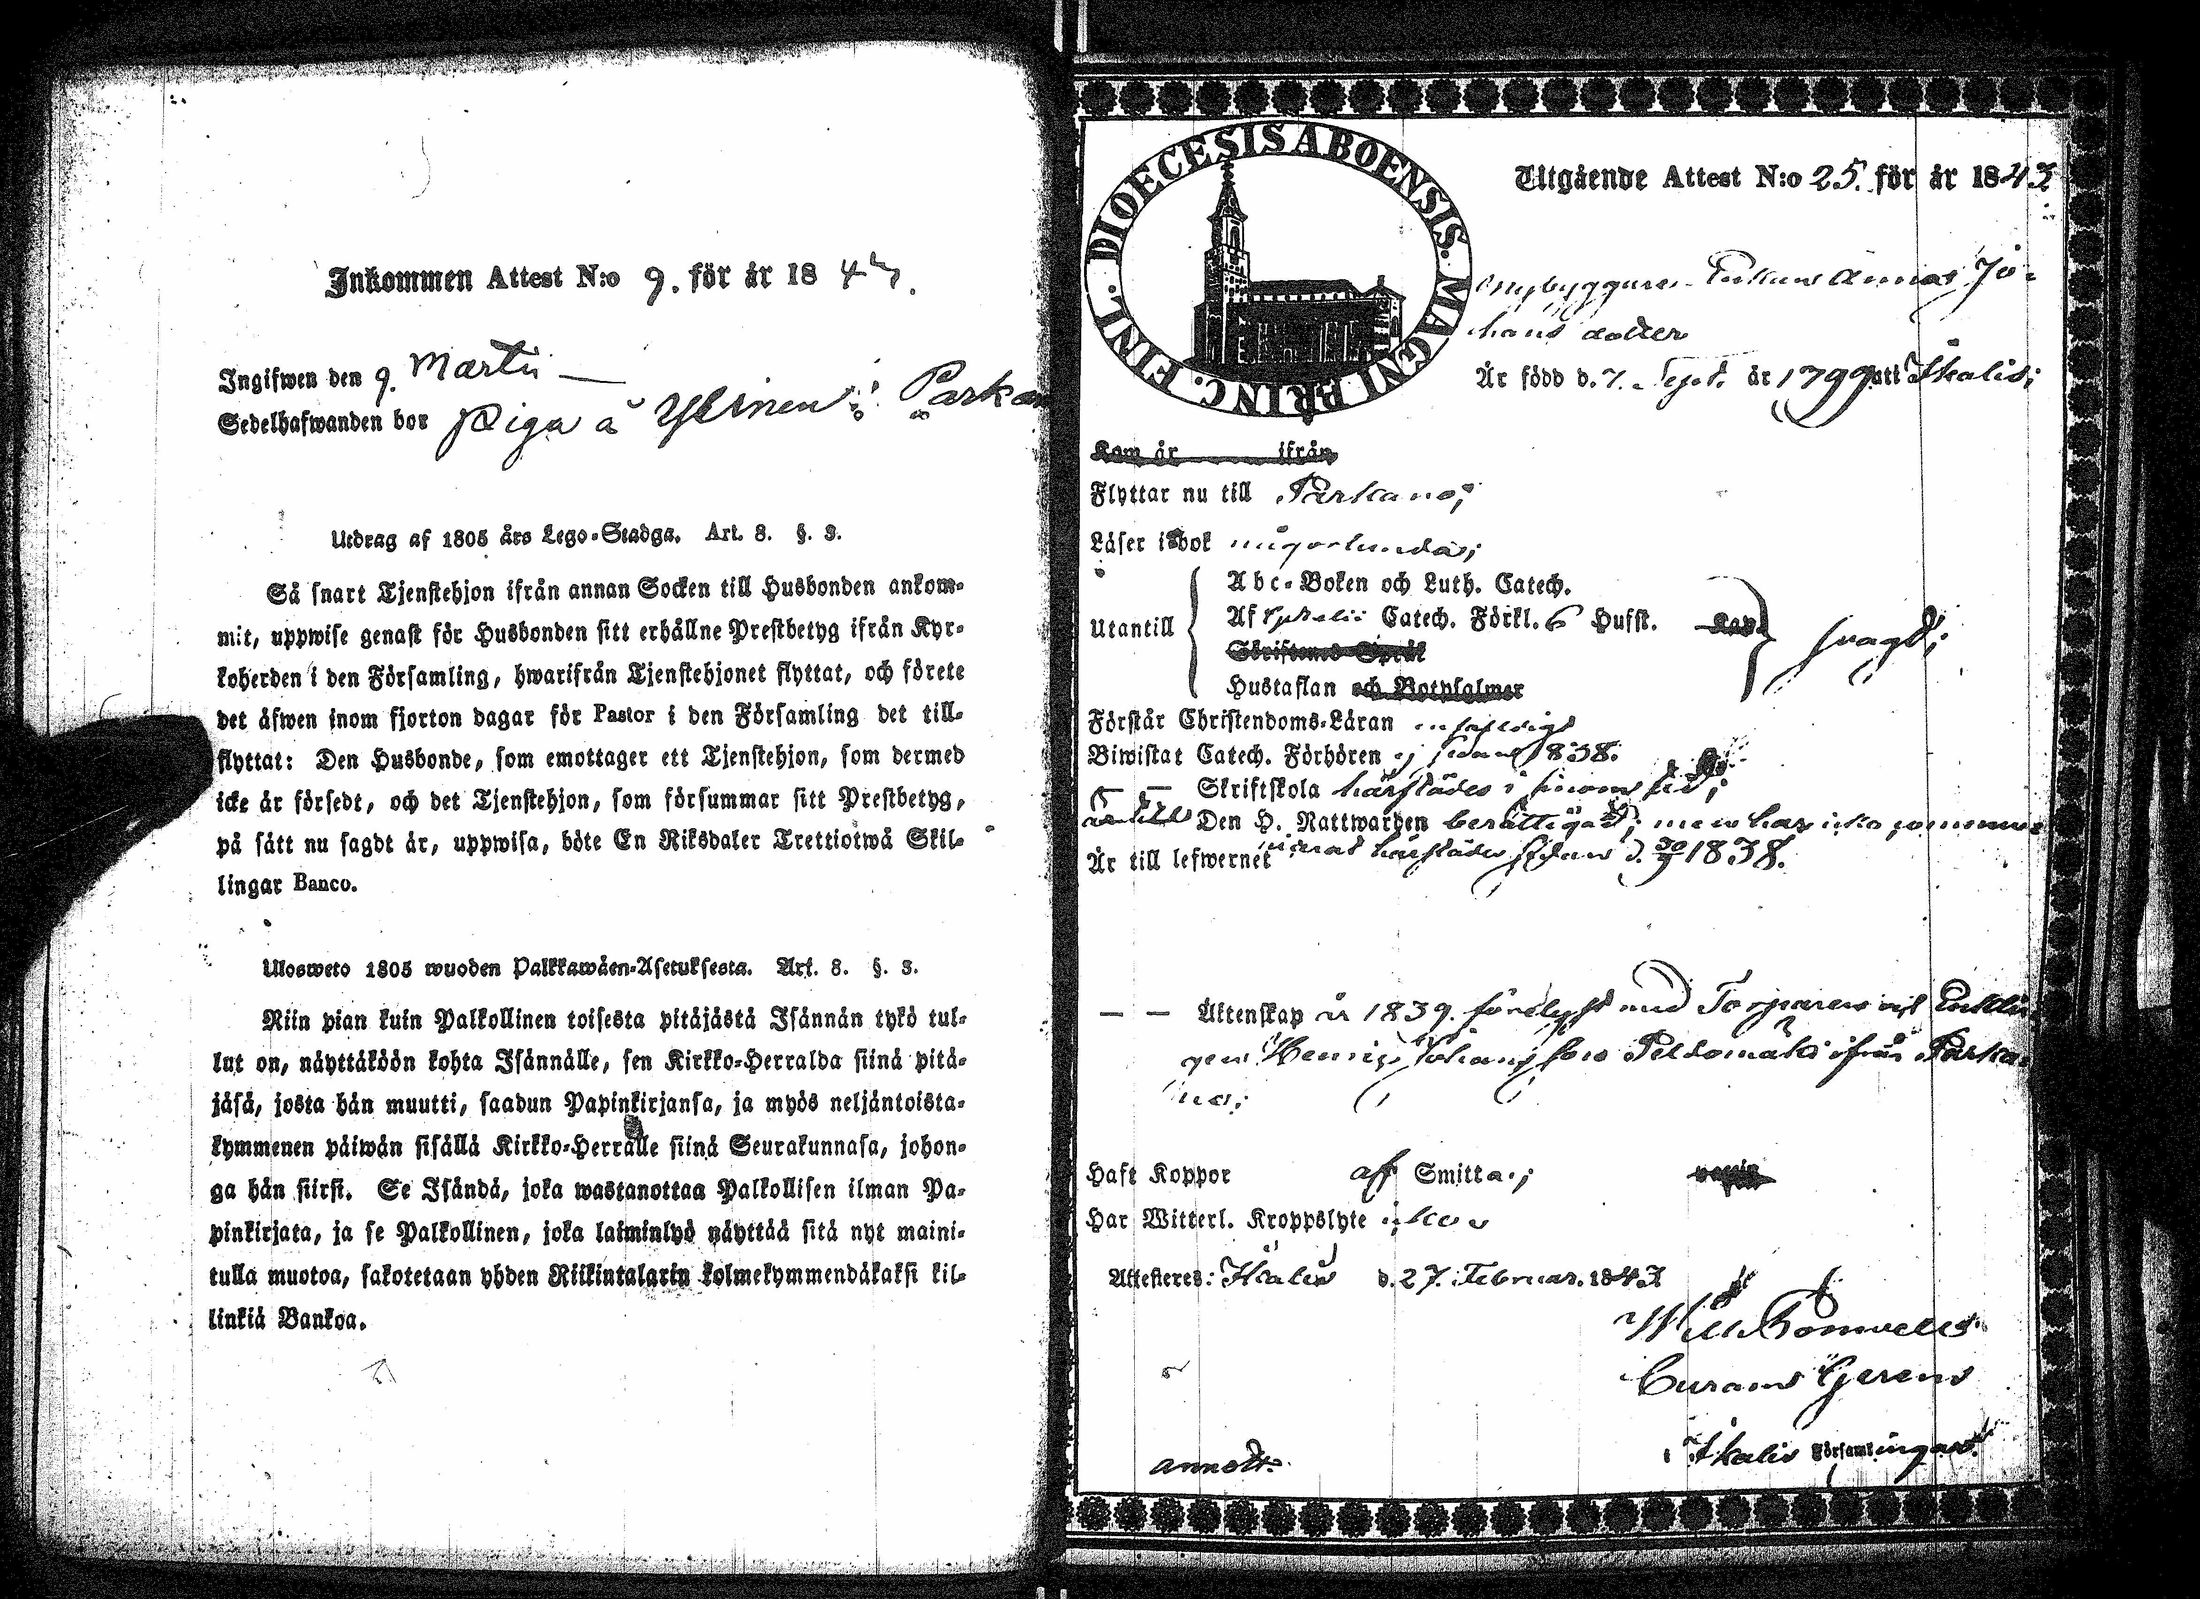 Inkommen Attest N:o 9. för år 184
Ingifwen den 9. Martii —
Sedelhafwanden bor Piga å Ylinen i Parkan
Utdrag af 1805 års Lego-Stadga. Art. 8. §. 3.
Så snart Tjenstehjon ifrån annan Socken till Husbonden ankom-
mit, uppwise genast för Husbonden sitt erhållne Prestbetyg ifrån Kyr-
koherden i den Församling, hwarifrån Tjenstehjonet flyttat, och förete
det äfwen inom fjorton dagar för Pastor i den Församling det till-
flyttat: Den Husbonde, som emottager ett Tjenstehjon, som dermed
icke är försedt, och det Tjenstehjon, som försummar sitt Prestbetyg,
på sätt nu sagdt är, uppwisa, böte En Riksdaler Trettiotwå Skil-
lingar Banco.
Ulosweto 1805 wuoden Palkkawäen-Asetuksesta. Art. 8. §. 3.
Niin pian kuin Palkollinen toisesta pitäjästä Isännän tykö tul-
lut on, näyttäköön kohta Isännälle, sen Kirkko-Herralda siinä pitä-
jäsä, josta hän muutti, saadun Papinkirjansa, ja myös neljäntoista-
kymmenen päiwän sisällä Kirkko-Herralle siinä Seurakunnasa, johon-
ga hän siirsi. Se Isändä, joka wastanottaa Palkollisen ilman Pa-
pinkirjata, ja se Palkollinen, joka laiminlyö näyttää sitä nyt maini-
tulla muotoa, sakotetaan yhden Riikintalarin kolmekymmendäkaksi kil-
linkiä Bankoa.
DIOECESIS ABOENSIS. MAGNI PRINC. FINL.
Utgående Attest N:o 25. för år 1843
Nybyggare-Enkan Anna Jo-
hans dotter
Är född d. 7. Sept. år 1799 uti Ikalis;
Kom år ifrån
Flyttar nu till Parkano;
Läser i bok någorlunda;
Utantill
Abc-Boken och Luth. Catech.
Af Catech. Förkl. 6 Hufst. Kap. svagt;
Skriftenes Språk
Hustaflan och Botpsalmer
Förstår Christendoms-Läran enfaldigt
Biwistat Catech. Förhören ej sedan 1838.
— — Skriftskola härstädes i sinom tid;
Den H. Nattwarden berättigad; men har icke
Är till lefwernet härstädes sedan d. 30/9 1838.
— — Äktenskap år 1839. förelyst med Torparen och Enklin-
gen Henric Johans son Peldomäki ifrån Parka-
no;
Haft Koppor af Smitta;
Har Witterl. Kroppslyte icke
Attesteras: Ikalis d. 27. Februar. 1843
Curam Gerens
i Ikalis Församlingar.
annot.